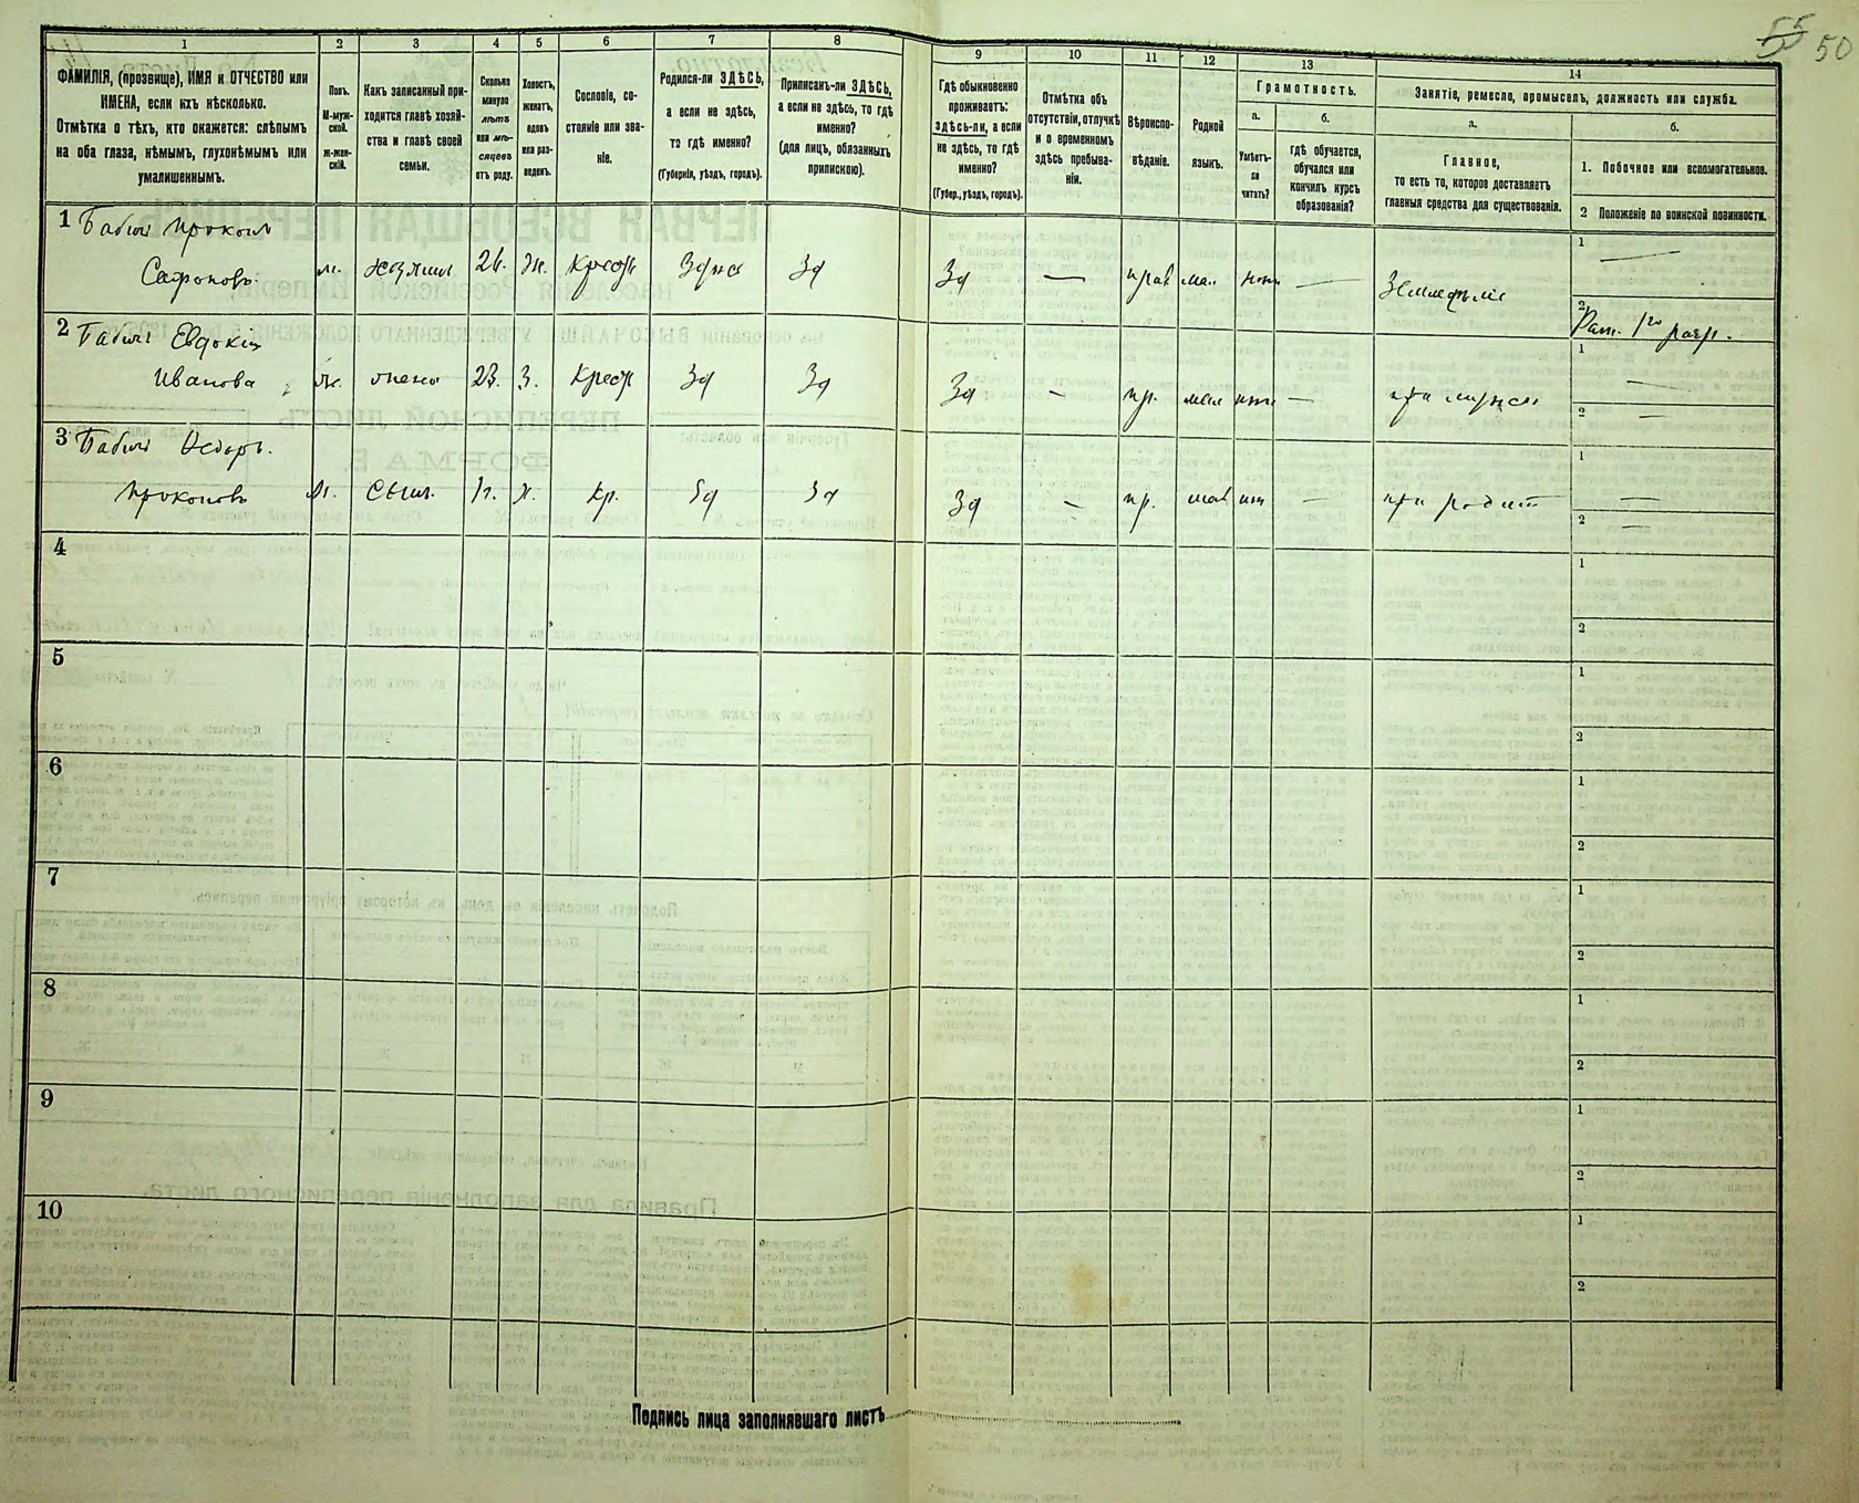 55 50
1
ФАМИЛІЯ, (прозвище), ИМЯ и ОТЧЕСТВО или
ИМЕНА, если ихъ нѣсколько.
Отмѣтка о тѣхъ, кто окажется: слѣпымъ
на оба глаза, нѣмымъ, глухонѣмымъ или
умалишеннымъ.
2
Полъ.
М-муж-
ской.
Ж-жен-
скій.
3
Какъ записанный при-
ходится главѣ хозяй-
ства и главѣ своей
семьи.
4
Сколько
минуло
лѣтъ
или мѣ-
сяцевъ
отъ роду.
5
Холостъ,
женатъ,
вдовъ
или раз-
веденъ.
6
Сословіе, со-
стояніе или зва-
ніе.
7
Родился-ли ЗДѢСЬ,
а если не здѣсь,
то гдѣ именно?
(Губернія, уѣздъ, городъ).
8
Приписанъ-ли ЗДѢСЬ,
а если не здѣсь, то гдѣ
именно?
(для лицъ, обязанныхъ
припискою).
9
Гдѣ обыкновенно
проживаетъ:
здѣсь-ли, а если
не здѣсь, то гдѣ
именно?
(Губер., уѣздъ, городъ).
10
Отмѣтка объ
отсутствіи, отлучкѣ
и о временномъ
здѣсь пребыва-
ніи.
11
Вѣроиспо-
вѣданіе.
12
Родной
языкъ.
13
Грамотность.
а.
Умѣетъ-
ли
читать?
б.
гдѣ обучается,
обучался или
кончилъ курсъ
образованія?
14
Занятіе, ремесло, промыселъ, должность или служба.
а.
Главное,
то есть то, которое доставляетъ
главныя средства для существованія.
б.
1. Побочное или вспомогательное.
2 Положеніе по воинской повинности.
1 Бабичъ Прокопъ
Сафоновъ м. хозяинъ 26. ж. Крест Здѣсь Зд Зд — прав мал — Земледѣліе
1 —
2 Рат. 1го разр.
2 Бабичъ Евдокія
Иванова ж. жена 23. З. Крест Зд Зд Зд — пр. мал — при мужѣ
1 —
2 —
3 Бабичъ Ѳедоръ
Прокоповъ м. сынъ 1г. х. Кр. Зд Зд Зд — пр. мал — при родит
1 —
2 —
4
1
2
5
1
2
6
1
2
7
1
2
8
1
2
9
1
2
10
1
2
Подпись лица заполнявшаго листъ